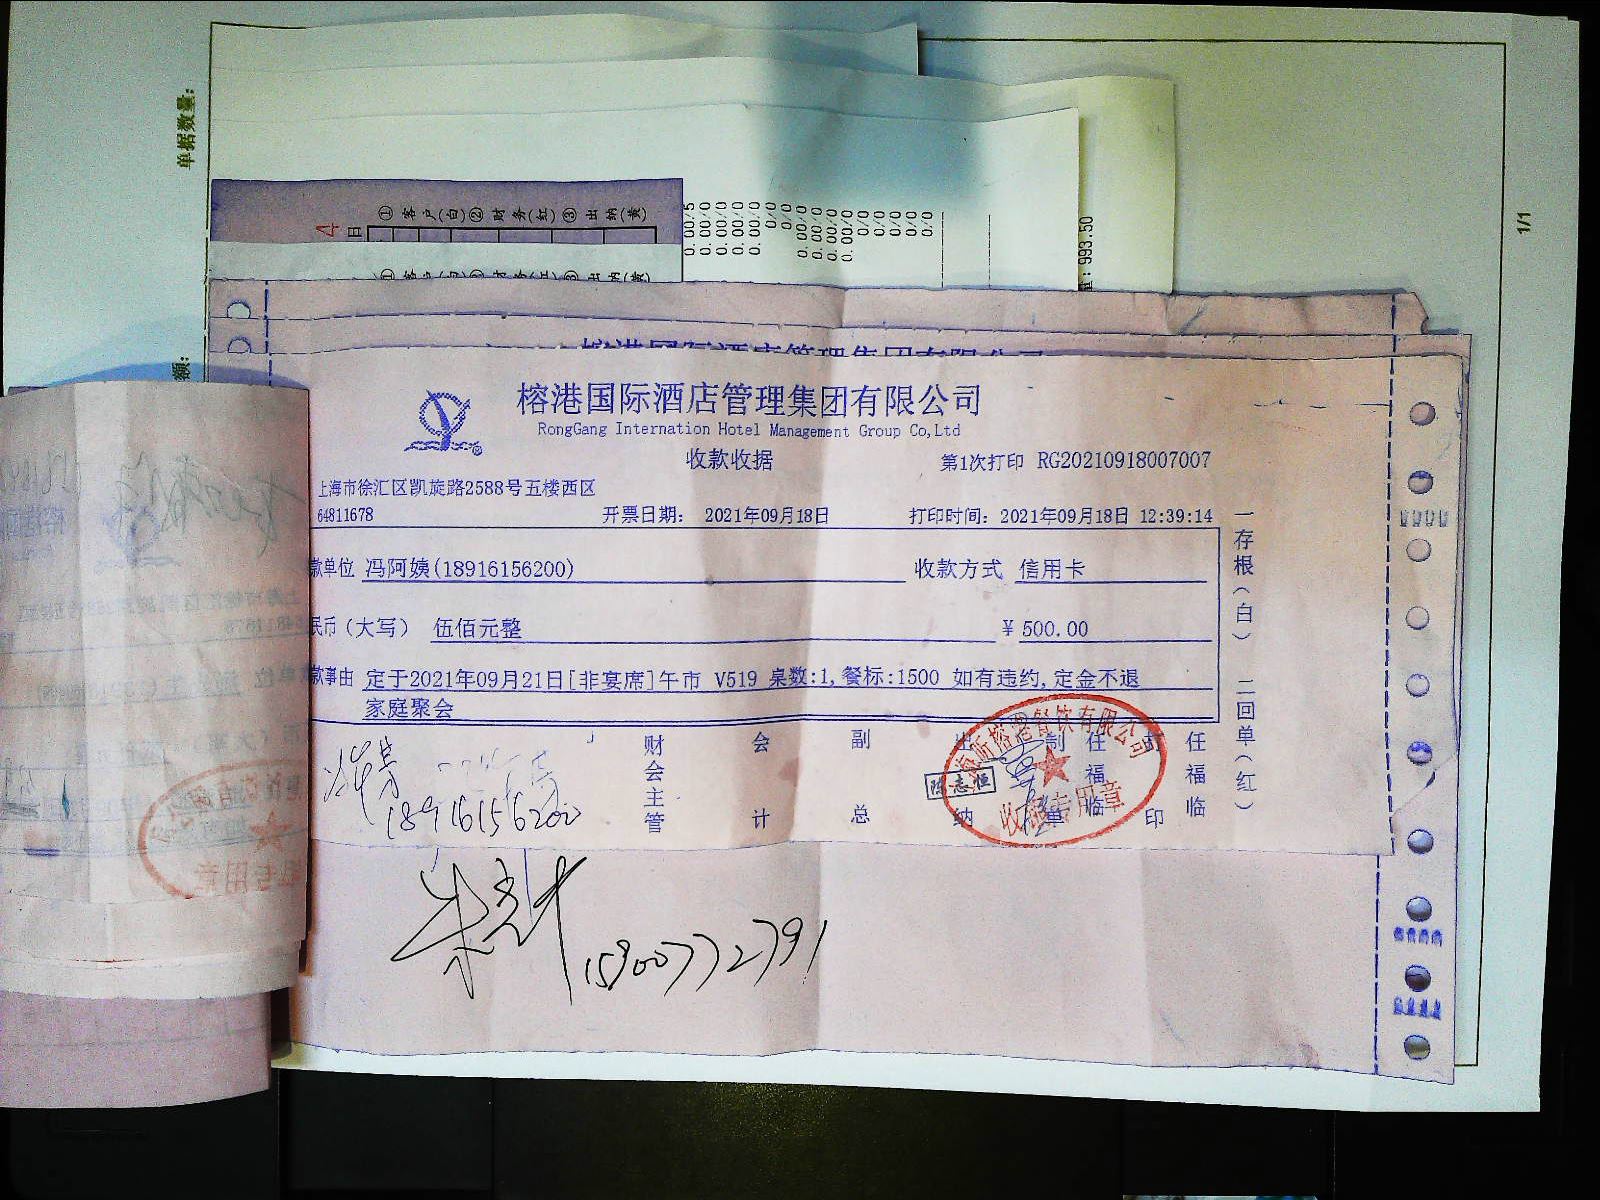 单据数量:
额:
1/1
量: 993.50
4日
① 客户(白)② 财务(红)③ 出纳(黄)
0.00/5
0.00/0
0.00/0
0.00/0
0.00/0
0/0
0/0
0.00/0
0.00/0
0.00/0
0.00/0
0/0
0/0
0/0
0/0
0/0
榕港国际酒店管理集团有限公司
榕港国际酒店管理集团有限公司
RongGang Internation Hotel Management Group Co,Ltd
收款收据
第1次打印 RG20210918007007
上海市徐汇区凯旋路2588号五楼西区
64811678
开票日期: 2021年09月18日
打印时间: 2021年09月18日 12:39:14
款单位 冯阿姨(18916156200)
收款方式 信用卡
民币(大写) 伍佰元整
¥ 500.00
款事由 定于2021年09月21日[非宴席]午市 V519 桌数:1,餐标:1500 如有违约,定金不退
家庭聚会
一存根(白) 二回单(红)
财会主管
会计
副总
出纳
制单
任福临
打印
任福临
陈志恒
榕港餐饮有限公司
收据专用章
18916156200
15900772791